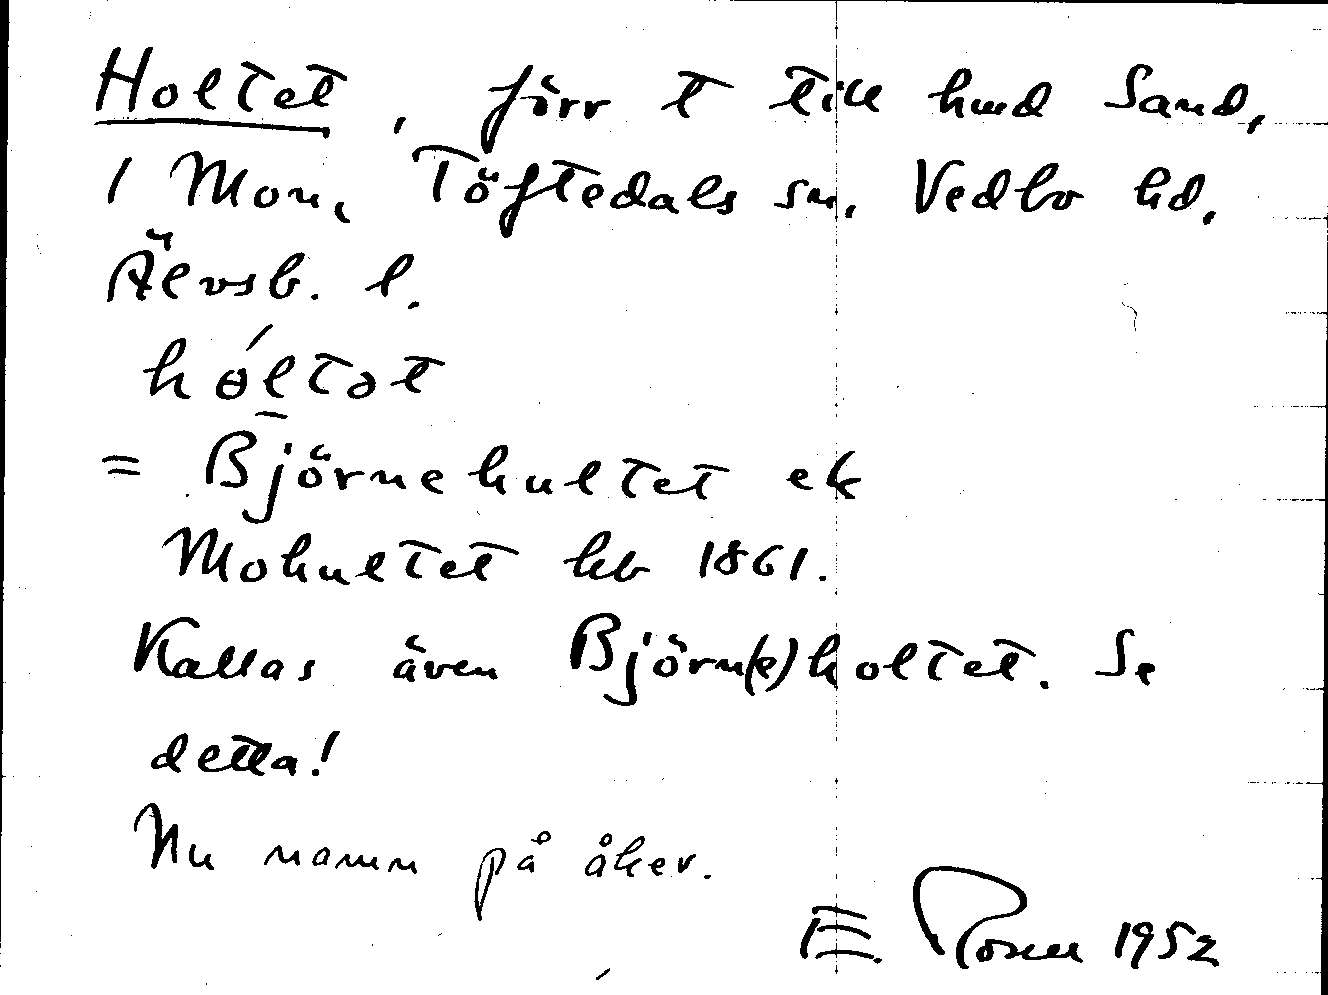 Holtet, förr t till hmd Sand,
1 Mon, Töftedals sn. Vedbo hd.
Älvsb. l.
hɵ́ltət
= Björnehultet ek
Mohultet hb 1861.
Kallas även Björn(e)holtet. Se
detta!
Nu namn på åker.
E. Rosen 1952